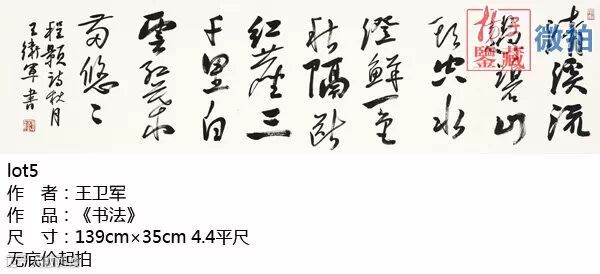 清溪流
過碧山
頭空水
澄鮮一色
秋隔斷
紅塵三
千里白
雲紅葉
兩悠々
程顥詩秋月
王衛軍書
微拍
鉴藏
lot5
作 者：王卫军
作 品：《书法》
尺 寸：139cm×35cm 4.4平尺
无底价起拍